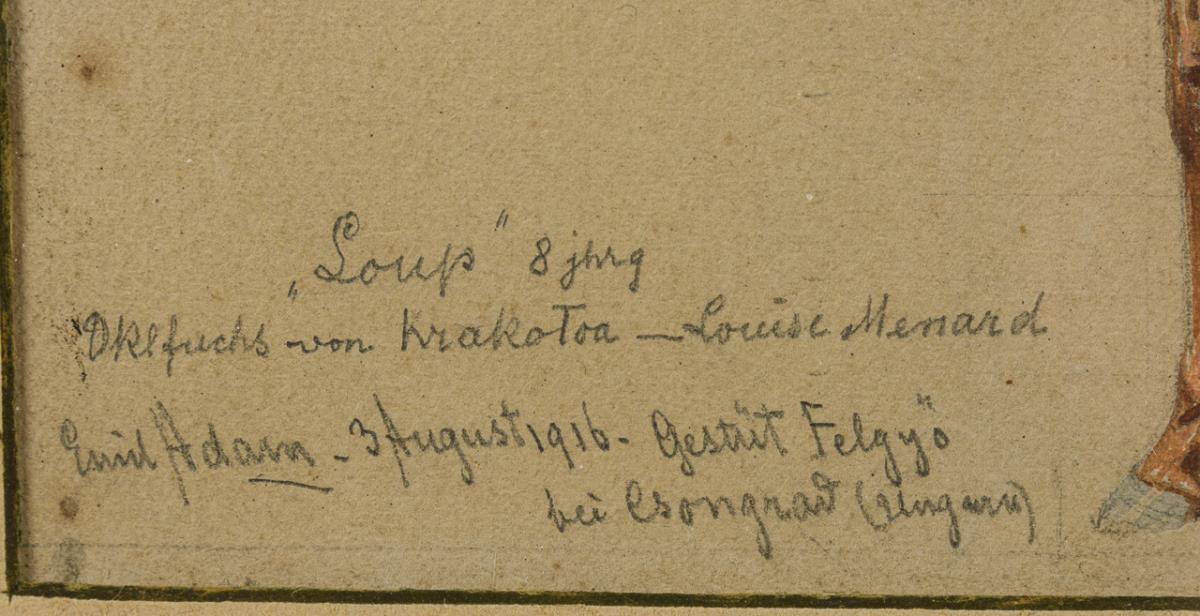 „Loup" 8 jhrg
Dklfuchs von Krakotoa — Louise Menard
Emil Adam - 3 August 1916 - Gestüt Felgyö
bei Csongrad (Ungarn)